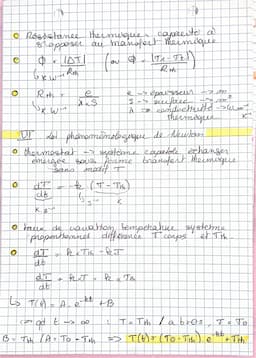 o Résistance thermique : capacité à
s'opposer au transfert thermique
o Φ = |ΔT| / Rth (ou Φ = |T1 - T2| / Rth)
↳ K.W⁻¹
o Rth = e / λ×S
e → épaisseur → m
S → surface → m²
λ → conductivité → W.m⁻¹ K⁻¹
thermique
↳ K.W⁻¹
VI Loi phénoménologique de Newton
o thermostat → système capable échanger
énergie sous forme transfert thermique
sans modif T
o dT/dt = -k (T - Tth)
K.s⁻¹ s⁻¹ K
o taux de variation température système
proportionnel différence T corps et Tth
o dT/dt = k×Tth - k×T
dT/dt + k×T = k×Tth
↳ T(t) = A.e^-kt + B
qd t → ∞ T = Tth / à t=0s, T = T0
B = Tth / A = T0 - Tth => T(t) = (T0 - Tth) e^-kt + Tth